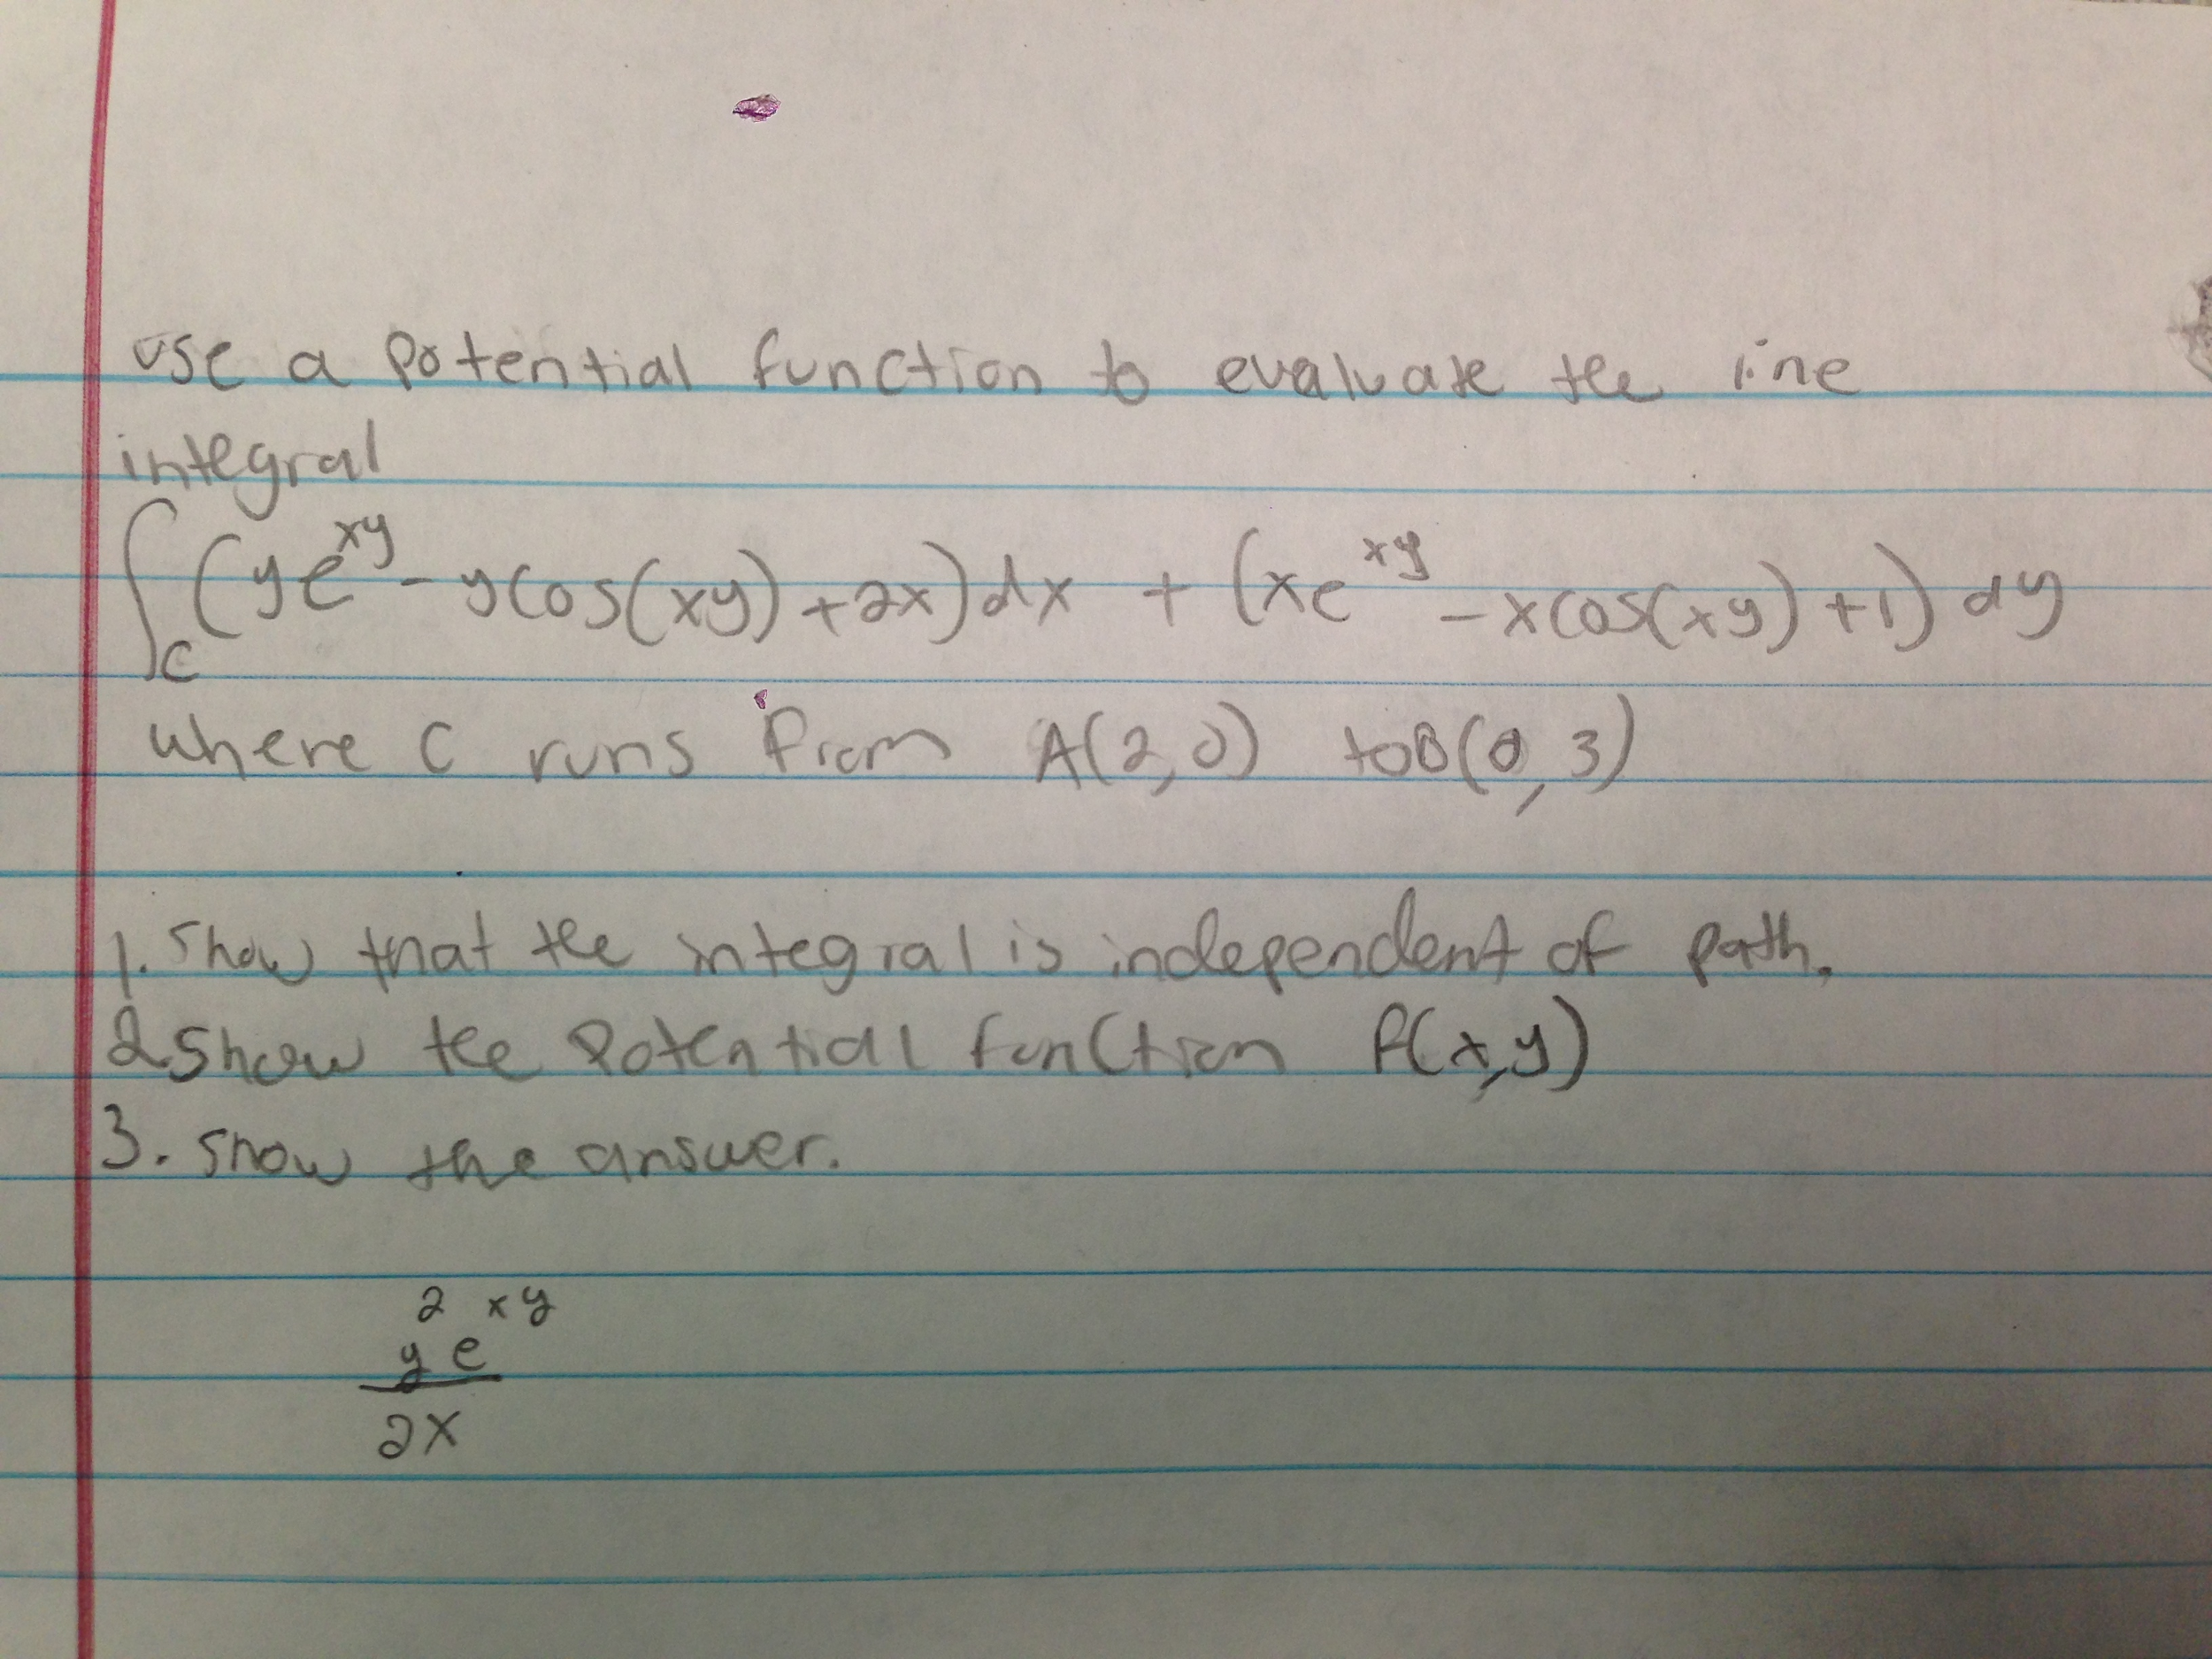 use a potential function to evaluate the line
integral
∫_C (ye^xy - ycos(xy) + 2x)dx + (xe^xy - xcos(xy) + 1) dy
where C runs from A(2,0) to B(0,3)
1. show that the integral is independent of path.
2 show the potential function f(x,y)
3. show the answer.
2 xy
y e
2x